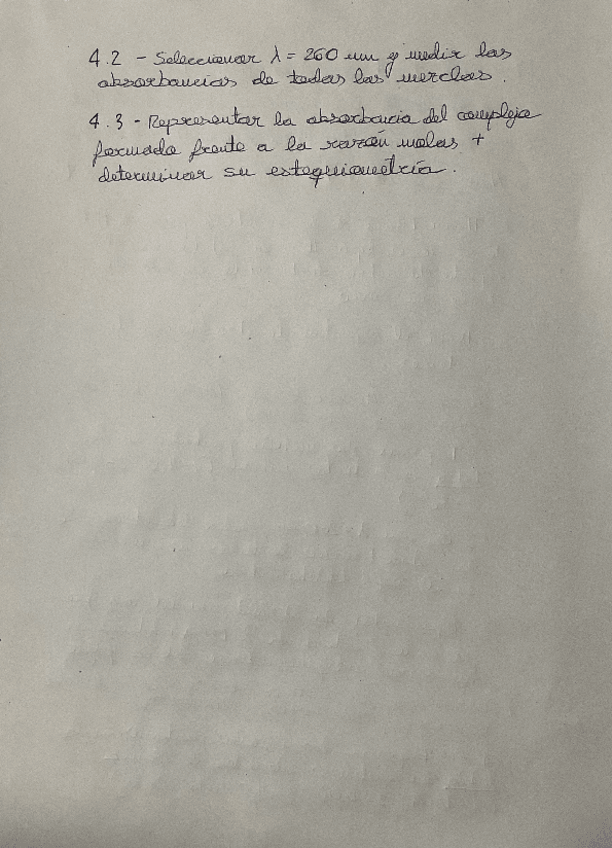 4.2 - Seleccionar λ = 260 nm y medir las
absorbancias de todas las mezclas.
4.3 - Representar la absorbancia del complejo
formado frente a la razón molas +
determinar su estequiometría.